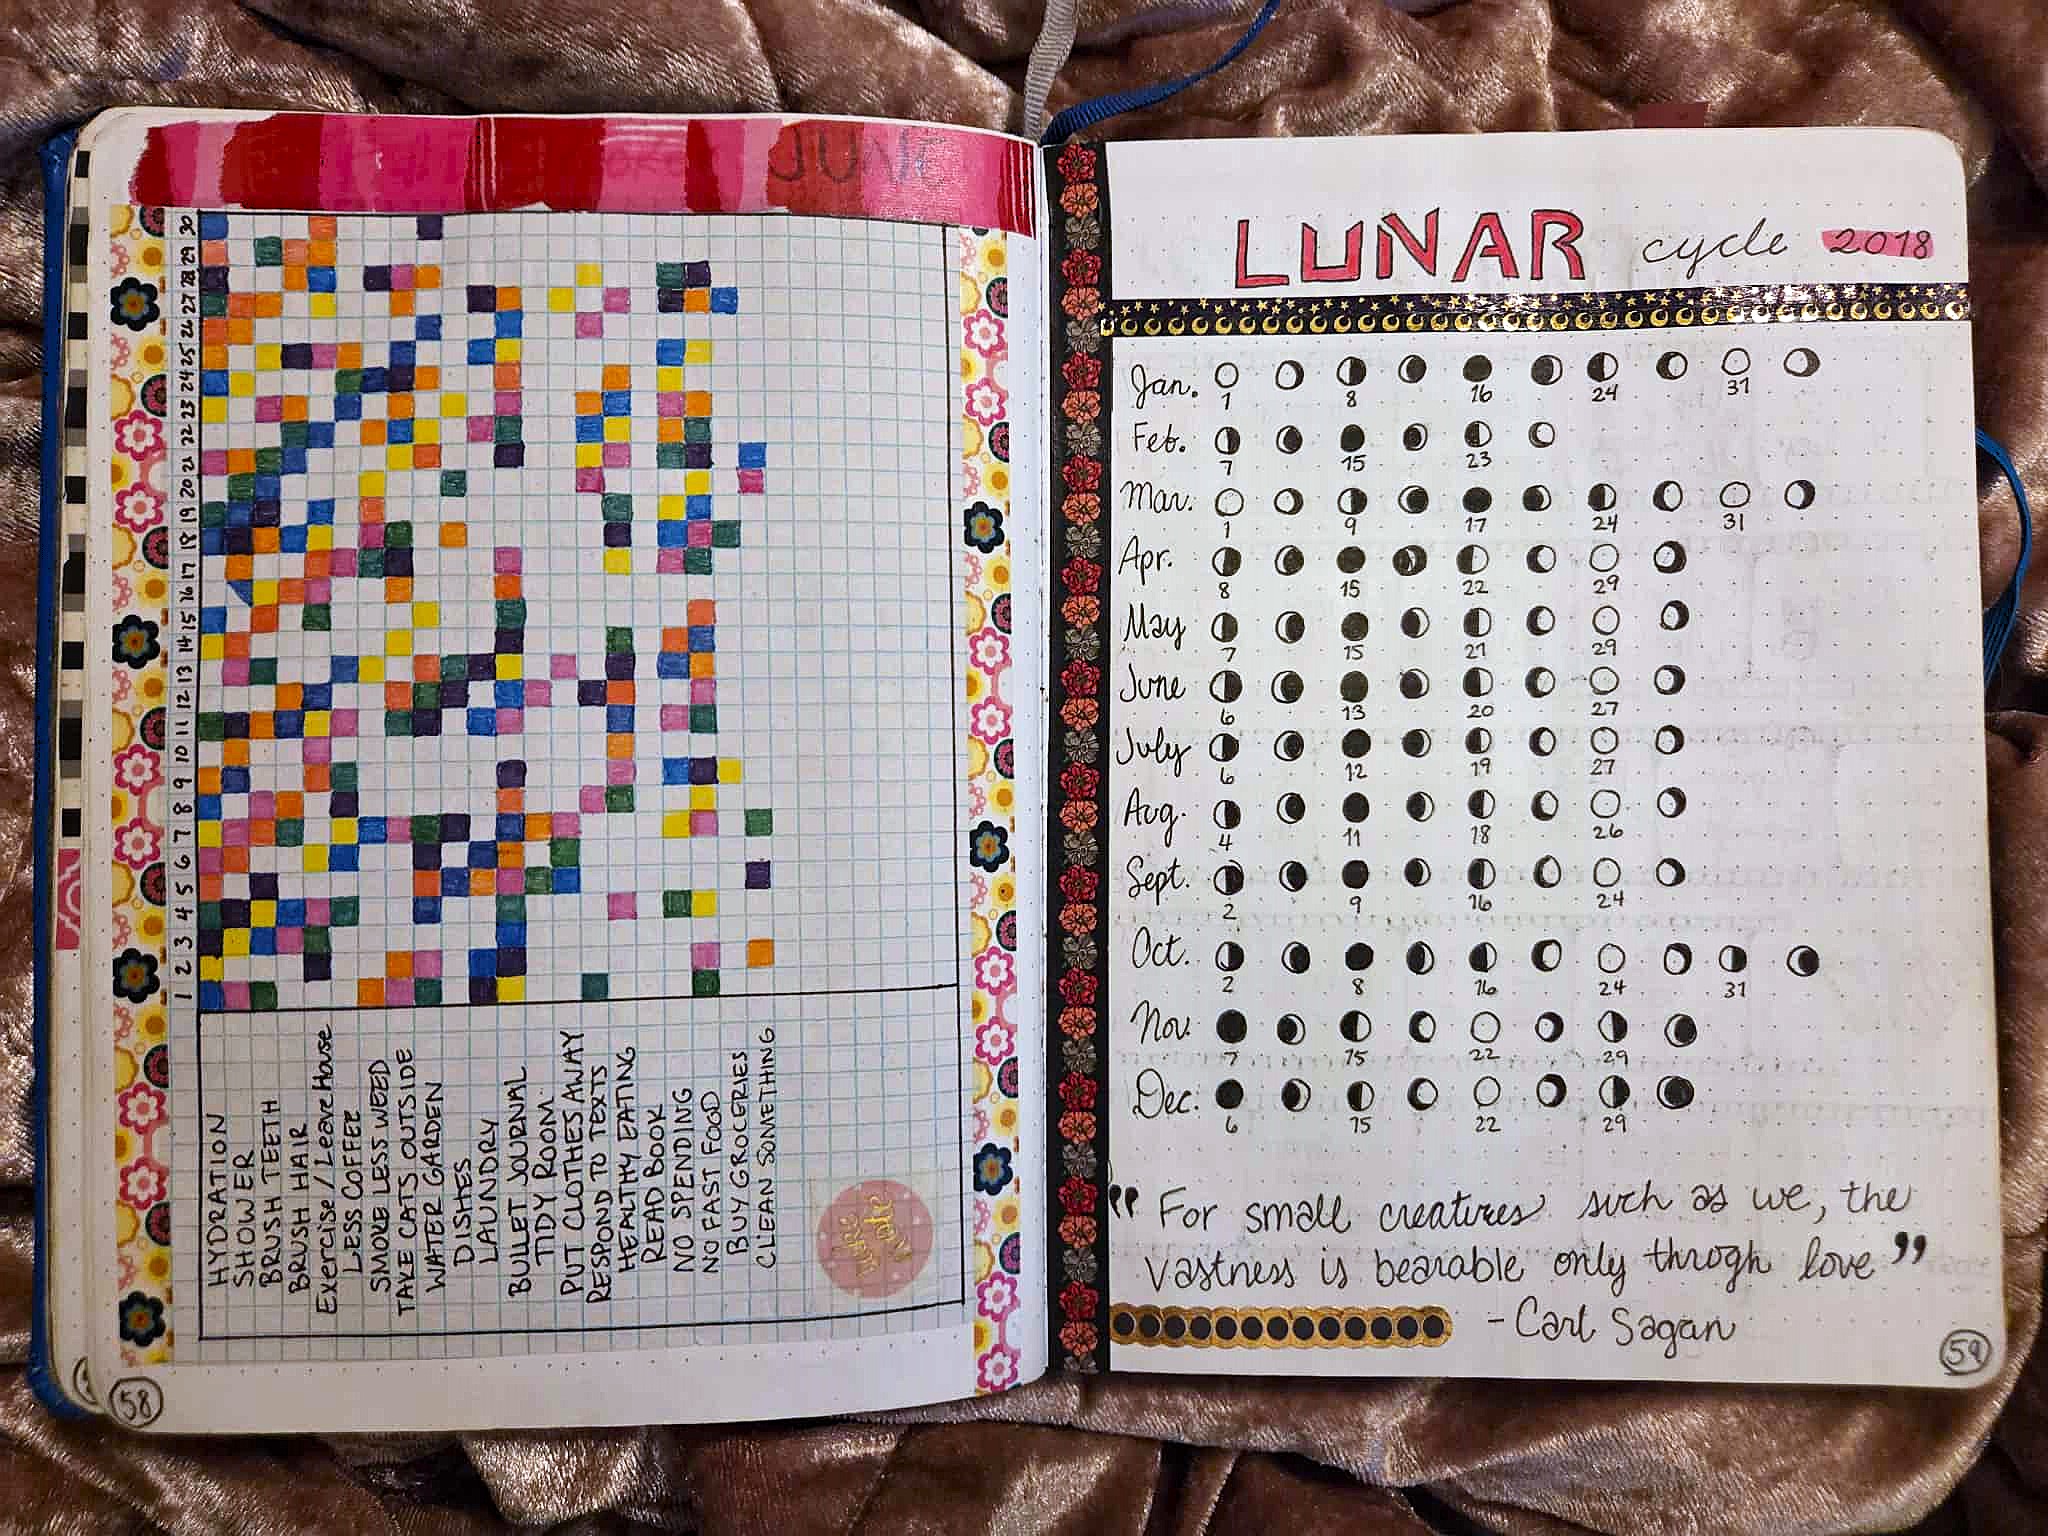 JUNE
1 2 3 4 5 6 7 8 9 10 11 12 13 14 15 16 17 18 19 20 21 22 23 24 25 26 27 28 29 30
HYDRATION
SHOWER
BRUSH TEETH
BRUSH HAIR
Exercise/Leave House
LESS COFFEE
SMOKE LESS WEED
TAKE CATS OUTSIDE
WATER GARDEN
DISHES
LAUNDRY
BULLET JOURNAL
TIDY ROOM
PUT CLOTHES AWAY
RESPOND TO TEXTS
HEALTHY EATING
READ BOOK
NO SPENDING
NO FAST FOOD
BUY GROCERIES
CLEAN SOMETHING
take note
58
LUNAR cycle 2018
Jan.
1 8 16 24 31
Feb.
7 15 23
Mar.
1 9 17 24 31
Apr.
8 15 22 29
May
7 15 21 29
June
6 13 20 27
July
6 12 19 27
Aug.
4 11 18 26
Sept.
2 9 16 24
Oct.
2 8 16 24 31
Nov.
7 15 22 29
Dec.
6 15 22 29
“For small creatures such as we, the
vastness is bearable only throgh love”
- Carl Sagan
59